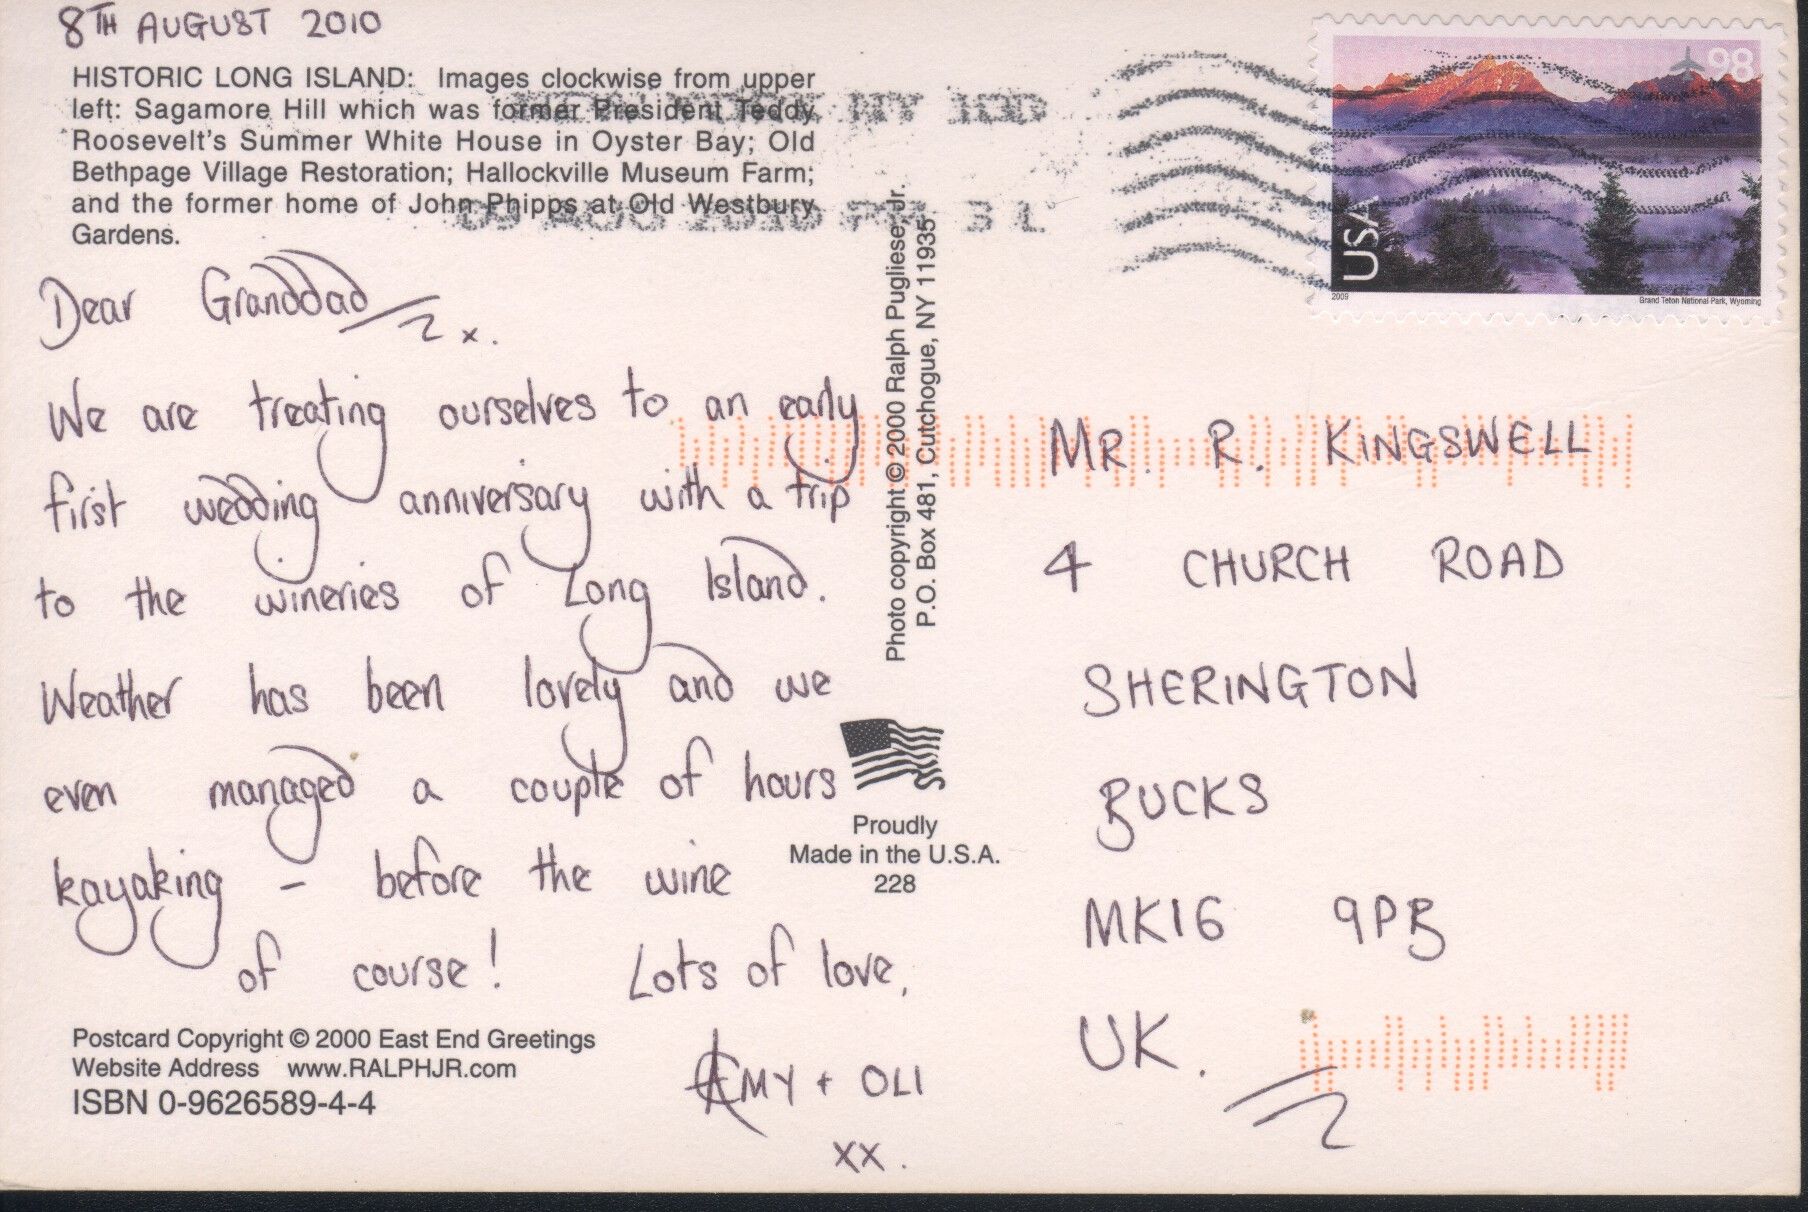 8TH AUGUST 2010
HISTORIC LONG ISLAND: Images clockwise from upper
left: Sagamore Hill which was former President Teddy
Roosevelt's Summer White House in Oyster Bay; Old
Bethpage Village Restoration; Hallockville Museum Farm;
and the former home of John Phipps at Old Westbury
Gardens.
Dear Granddad x.
We are treating ourselves to an early
first wedding anniversary with a trip
to the wineries of Long Island.
Weather has been lovely and we
even managed a couple of hours
kayaking - before the wine
of course! Lots of love,
AMY + OLI
xx.
Postcard Copyright © 2000 East End Greetings
Website Address www.RALPHJR.com
ISBN 0-9626589-4-4
Photo copyright © 2000 Ralph Pugliese, Jr.
P.O. Box 481, Cutchogue, NY 11935
Proudly
Made in the U.S.A.
228
NY
AUG 2010
98
USA
2009
Grand Teton National Park, Wyoming
MR. R. KINGSWELL
4 CHURCH ROAD
SHERINGTON
BUCKS
MK16 9PB
UK.